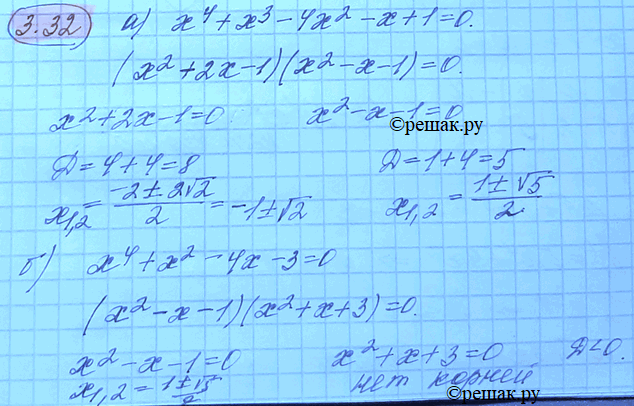 3.32 а) x⁴ + x³ - 4x² - x + 1 = 0.
(x² + 2x - 1)(x² - x - 1) = 0.
x² + 2x - 1 = 0 x² - x - 1 = 0
©решак.ру
Д = 4 + 4 = 8 Д = 1 + 4 = 5
x₁,₂ = (-2 ± 2√2)/2 = -1 ± √2 x₁,₂ = (1 ± √5)/2
б) x⁴ + x² - 4x - 3 = 0
(x² - x - 1)(x² + x + 3) = 0.
x² - x - 1 = 0 x² + x + 3 = 0 Д < 0.
x₁,₂ = (1 ± √5)/2 нет корней
©решак.ру